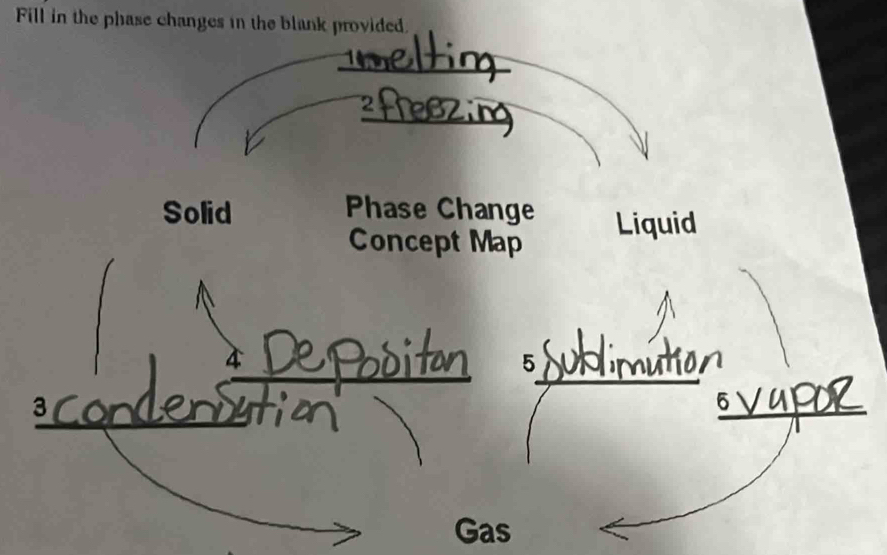 Fill in the phase changes in the blank provided.
1 melting
2 freezing
Solid
Phase Change
Concept Map
Liquid
4 Depositon
5 Sublimution
3 condensation
6 vapor
Gas